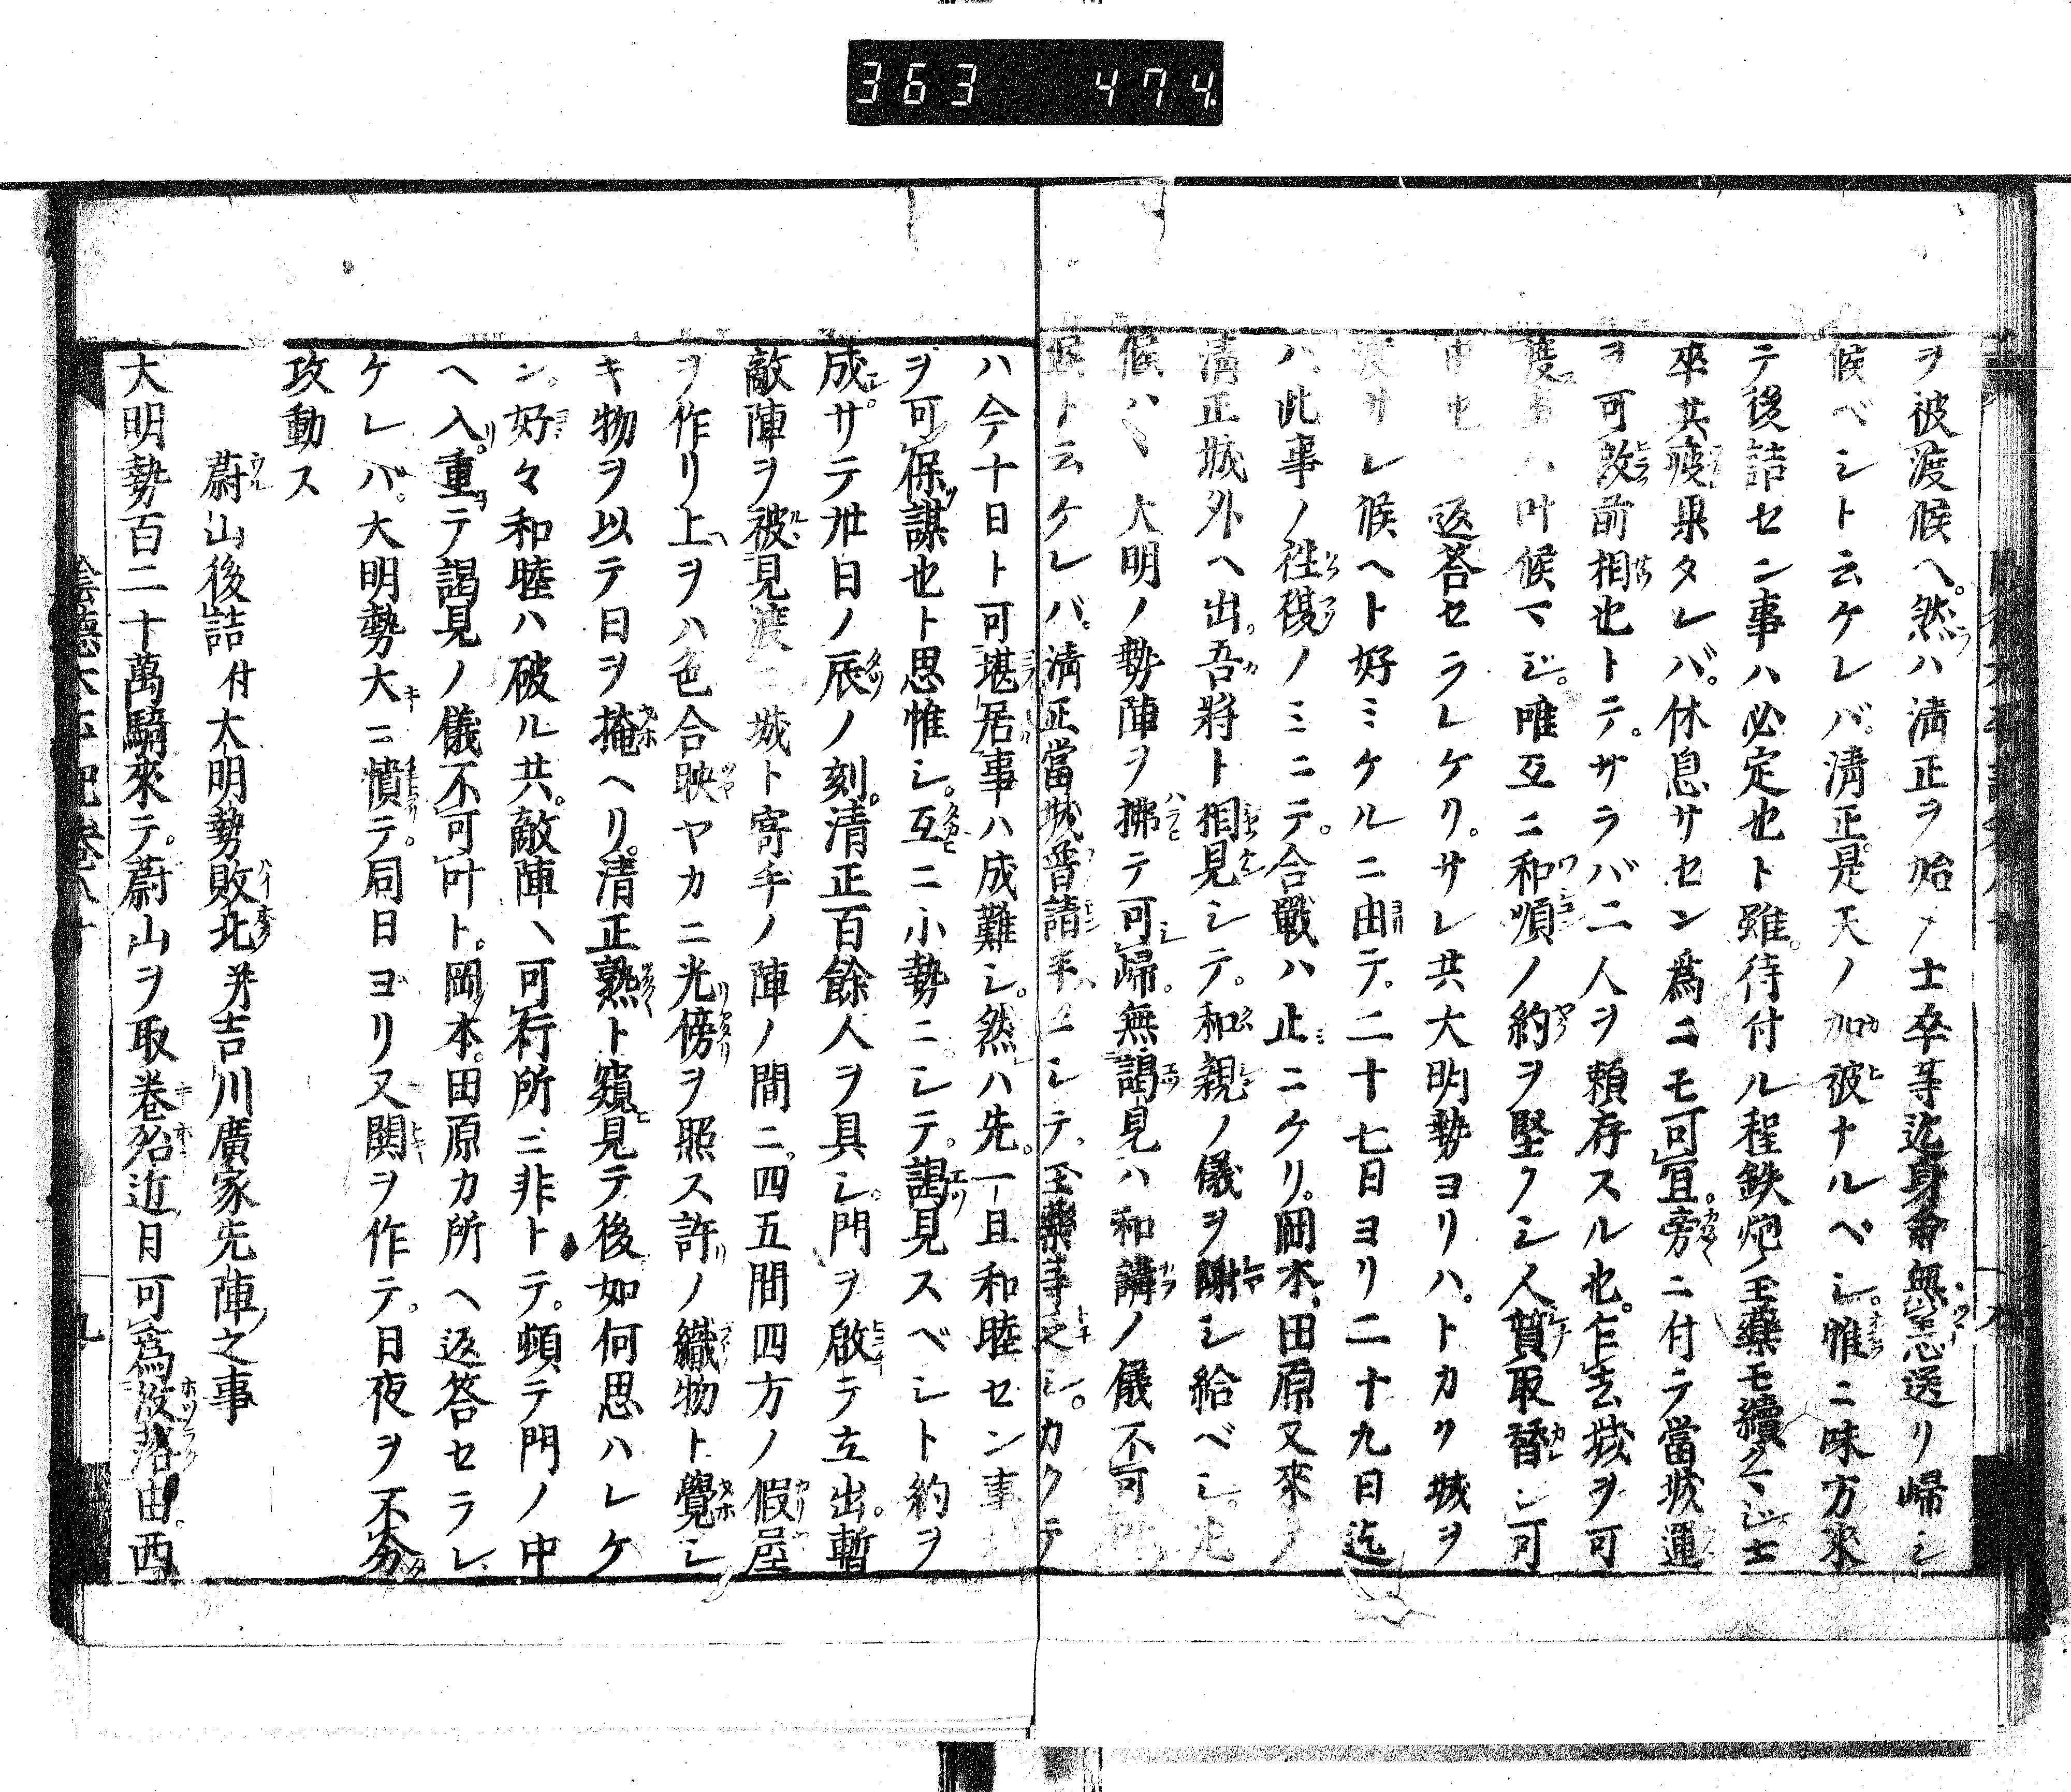 363 474
ヲ彼渡候ヘ。然ハ清正ヲ始メ士卒等迄身命無恙送リ歸シ
候ベシト云ケレバ。清正是天ノ加彼ナルベシ。惟ニ味方來
テ後詰セン事ハ必定也ト雖。待付ル程鉄炮ノ玉藥モ續クマジ。士
卒其疲果タレバ。休息サセン為ニモ可宜。旁ニ付テ當城運
ヲ可啟前相也トテ。サラバ二人ヲ頼存スル也。乍去城ヲ可
渡事ハ叶候マジ。唯互ニ和順ノ約ヲ堅クシ人質取替シ可
申也 返答セラレケリ。サレ共大明勢ヨリハ。トカク城ヲ
渡サレ候ヘト好ミケルニ由テ。二十七日ヨリ二十九日迄
ハ。此事ノ往復ノミニテ。合戰ハ止ニケリ。岡本。田原又來ノ
清正城外ヘ出。吾將ト相見シテ。和親ノ儀ヲ謝シ給ベシ。
候ハヾ大明ノ勢陣ヲ拂テ可歸。無謁見ハ和講ノ儀不可
候ト云ケレバ。清正當城普請半ニシテ。玉藥等乏シ。カクテ
ハ今十日ト可堪居事ハ成難シ。然ハ先。一旦和睦セン事
ヲ可保謀也ト思惟シ。互ニ小勢ニシテ。謁見スベシト約ヲ
成。サテ卅日ノ辰ノ刻。清正百餘人ヲ具シ。門ヲ啟テ立出。暫
敵陣ヲ被見渡ニ城ト寄手ノ陣ノ間ニ。四五間四方ノ假屋
ヲ作リ上ヲハ色合映ヤカニ光傍ヲ照ス許ノ織物ト覺シ
キ物ヲ以テ日ヲ掩ヘリ。清正熟ト窺見テ後如何思ハレケ
ン。好々和睦ハ破ル共。敵陣ヘ可行所ニ非トテ。頓テ門ノ中
ヘ入。重テ謁見ノ儀不可叶ト。岡本。田原カ所ヘ返答セラレ
ケレバ。大明勢大ニ憤テ。同日ヨリ又鬨ヲ作テ。日夜ヲ不分
攻動ス
蔚山後詰付大明勢敗北并吉川廣家先陣之事
大明勢百二十萬騎來テ。蔚山ヲ取巻殆近日可為没落由。西